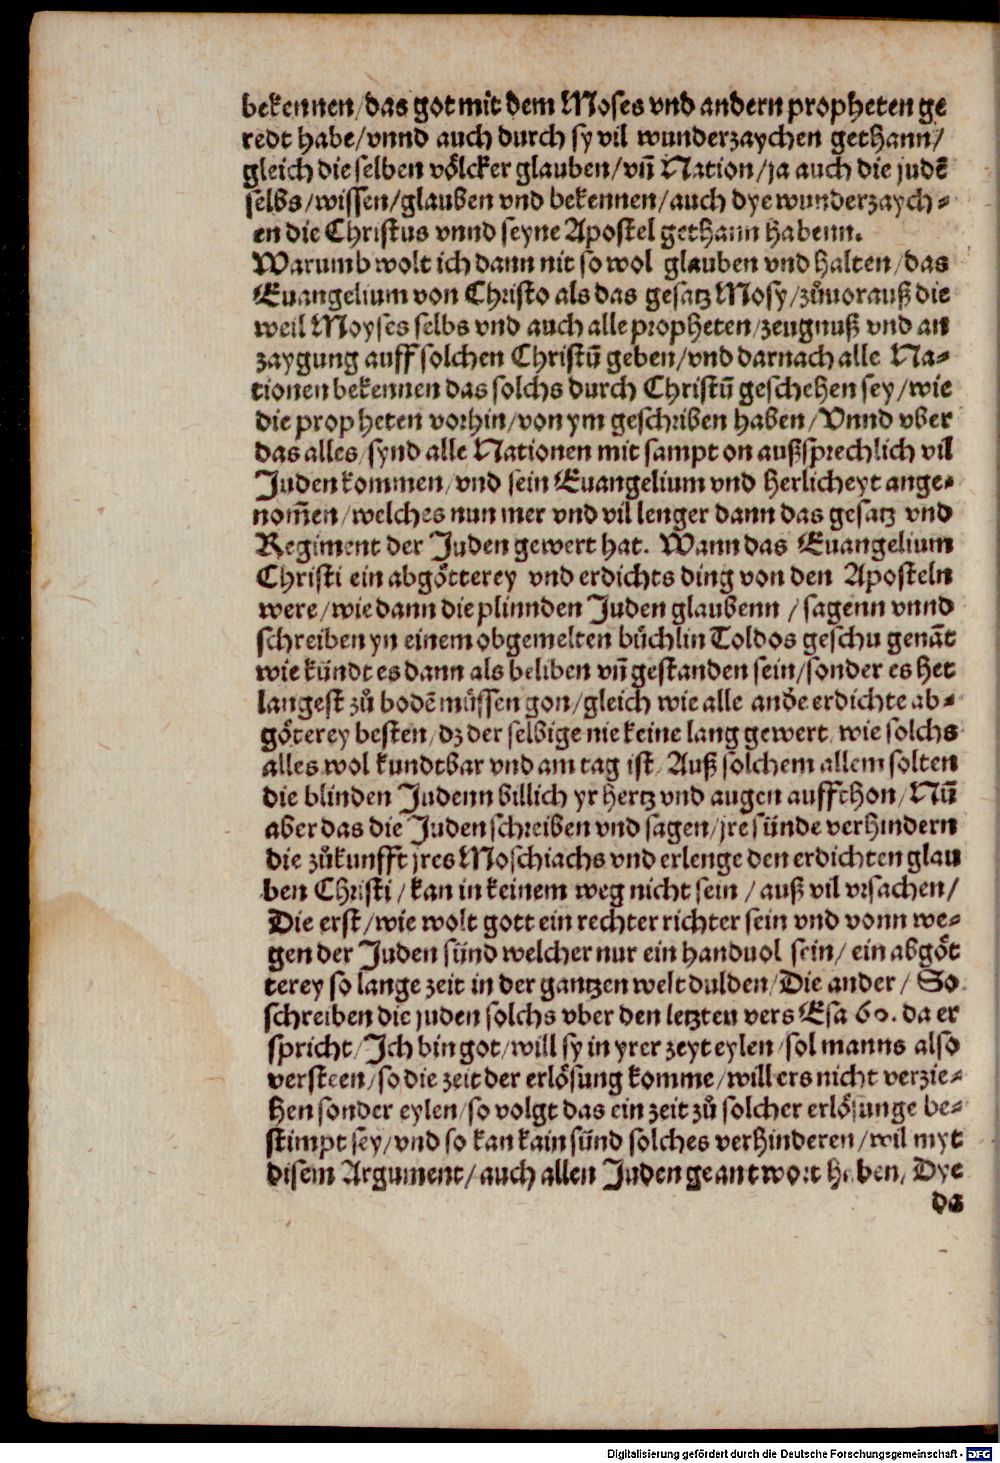 bekennen/das got mit dem Moses vnd andern propheten ge
redt habe/vnnd auch durch sy vil wunderzaychen gethann/
gleich die selben voͤlcker glauben/vñ Nation/ja auch die judẽ
selbs/wissen/glauben vnd bekennen/auch dye wunderzaych⸗
en die Christus vnnd seyne Apostel gethann habenn.
Warumb wolt ich dann nit so wol glauben vnd halten/das
Euangelium von Christo als das gesatz Mosy/zůuorauß die
weil Moyses selbs vnd auch alle propheten/zeugnuß vnd an
zaygung auff solchen Christũ geben/vnd darnach alle Na⸗
tionen bekennen das solchs durch Christũ geschehen sey/wie
die propheten vorhin/von ym geschriben haben/Vnnd vber
das alles/synd alle Nationen mit sampt on außsprechlich vil
Juden kommen/vnd sein Euangelium vnd herlicheyt ange⸗
nom̃en/welches nun mer vnd vil lenger dann das gesatz vnd
Regiment der Juden gewert hat. Wann das Euangelium
Christi ein abgoͤtterey vnd erdichts ding von den Aposteln
were/wie dann die plinnden Juden glaubenn/sagenn vnnd
schreiben yn einem obgemelten buͤchlin Toldos geschu genãt
wie kuͤndt es dann als beliben vñ gestanden sein/sonder es het
langest zů bodẽ muͤssen gon/gleich wie alle andͤe erdichte ab⸗
goͤterey besten/dz der selbige nie keine lang gewert/wie solchs
alles wol kundtbar vnd am tag ist/Auß solchem allem solten
die blinden Judenn billich yr hertz vnd augen auffthon/Nũ
aber das die Juden schreiben vnd sagen/jre suͤnde verhindern
die zůkunfft jres Moschiachs vnd erlenge den erdichten glau
ben Christi/kan in keinem weg nicht sein/auß vil vrsachen/
Die erst/wie wolt gott ein rechter richter sein vnd vonn we⸗
gen der Juden suͤnd welcher nur ein handuol sein/ein abgoͤt
terey so lange zeit in der gantzen welt dulden/Die ander/So
schreiben die juden solchs vber den letzten vers Esa 60. da er
spricht/Ich bin got/will sy in yrer zeyt eylen/sol manns also
versteen/so die zeit der erloͤsung komme/will ers nicht verzie⸗
hen sonder eylen/so volgt das ein zeit zů solcher erloͤsunge be⸗
stimpt sey/vnd so kan kain suͤnd solches verhinderen/wil myt
disem Argument/auch allen Juden geantwort haben/Dye
da
Digitalisierung gefördert durch die Deutsche Forschungsgemeinschaft - DFG